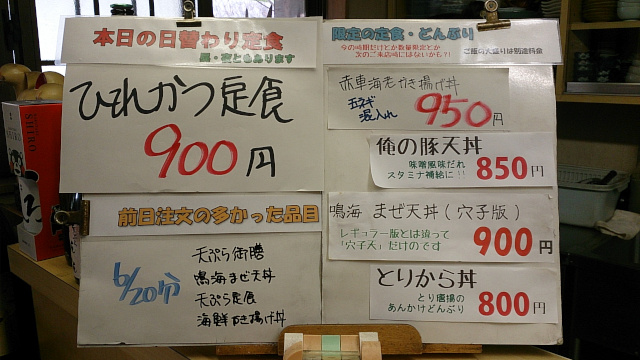 本日の日替わり定食
昼・夜ともあります
ひれかつ定食
900円
前日注文の多かった品目
6/20分
天ぷら御膳
鳴海まぜ天丼
天ぷら定食
海鮮かき揚げ丼
限定の定食・どんぶり
今の時期だけとか数量限定とか
次のご来店時にはないかも?!
ご飯の大盛りは別途料金
赤車海老かき揚げ丼
玉ネギ
混入れ
950円
俺の豚天丼
味噌風味だれ
スタミナ補給に!!
850円
鳴海 まぜ天丼(穴子版)
レギュラー版とは違って
「穴子天」だけのです
900円
とりから丼
とり唐揚の
あんかけどんぶり
800円